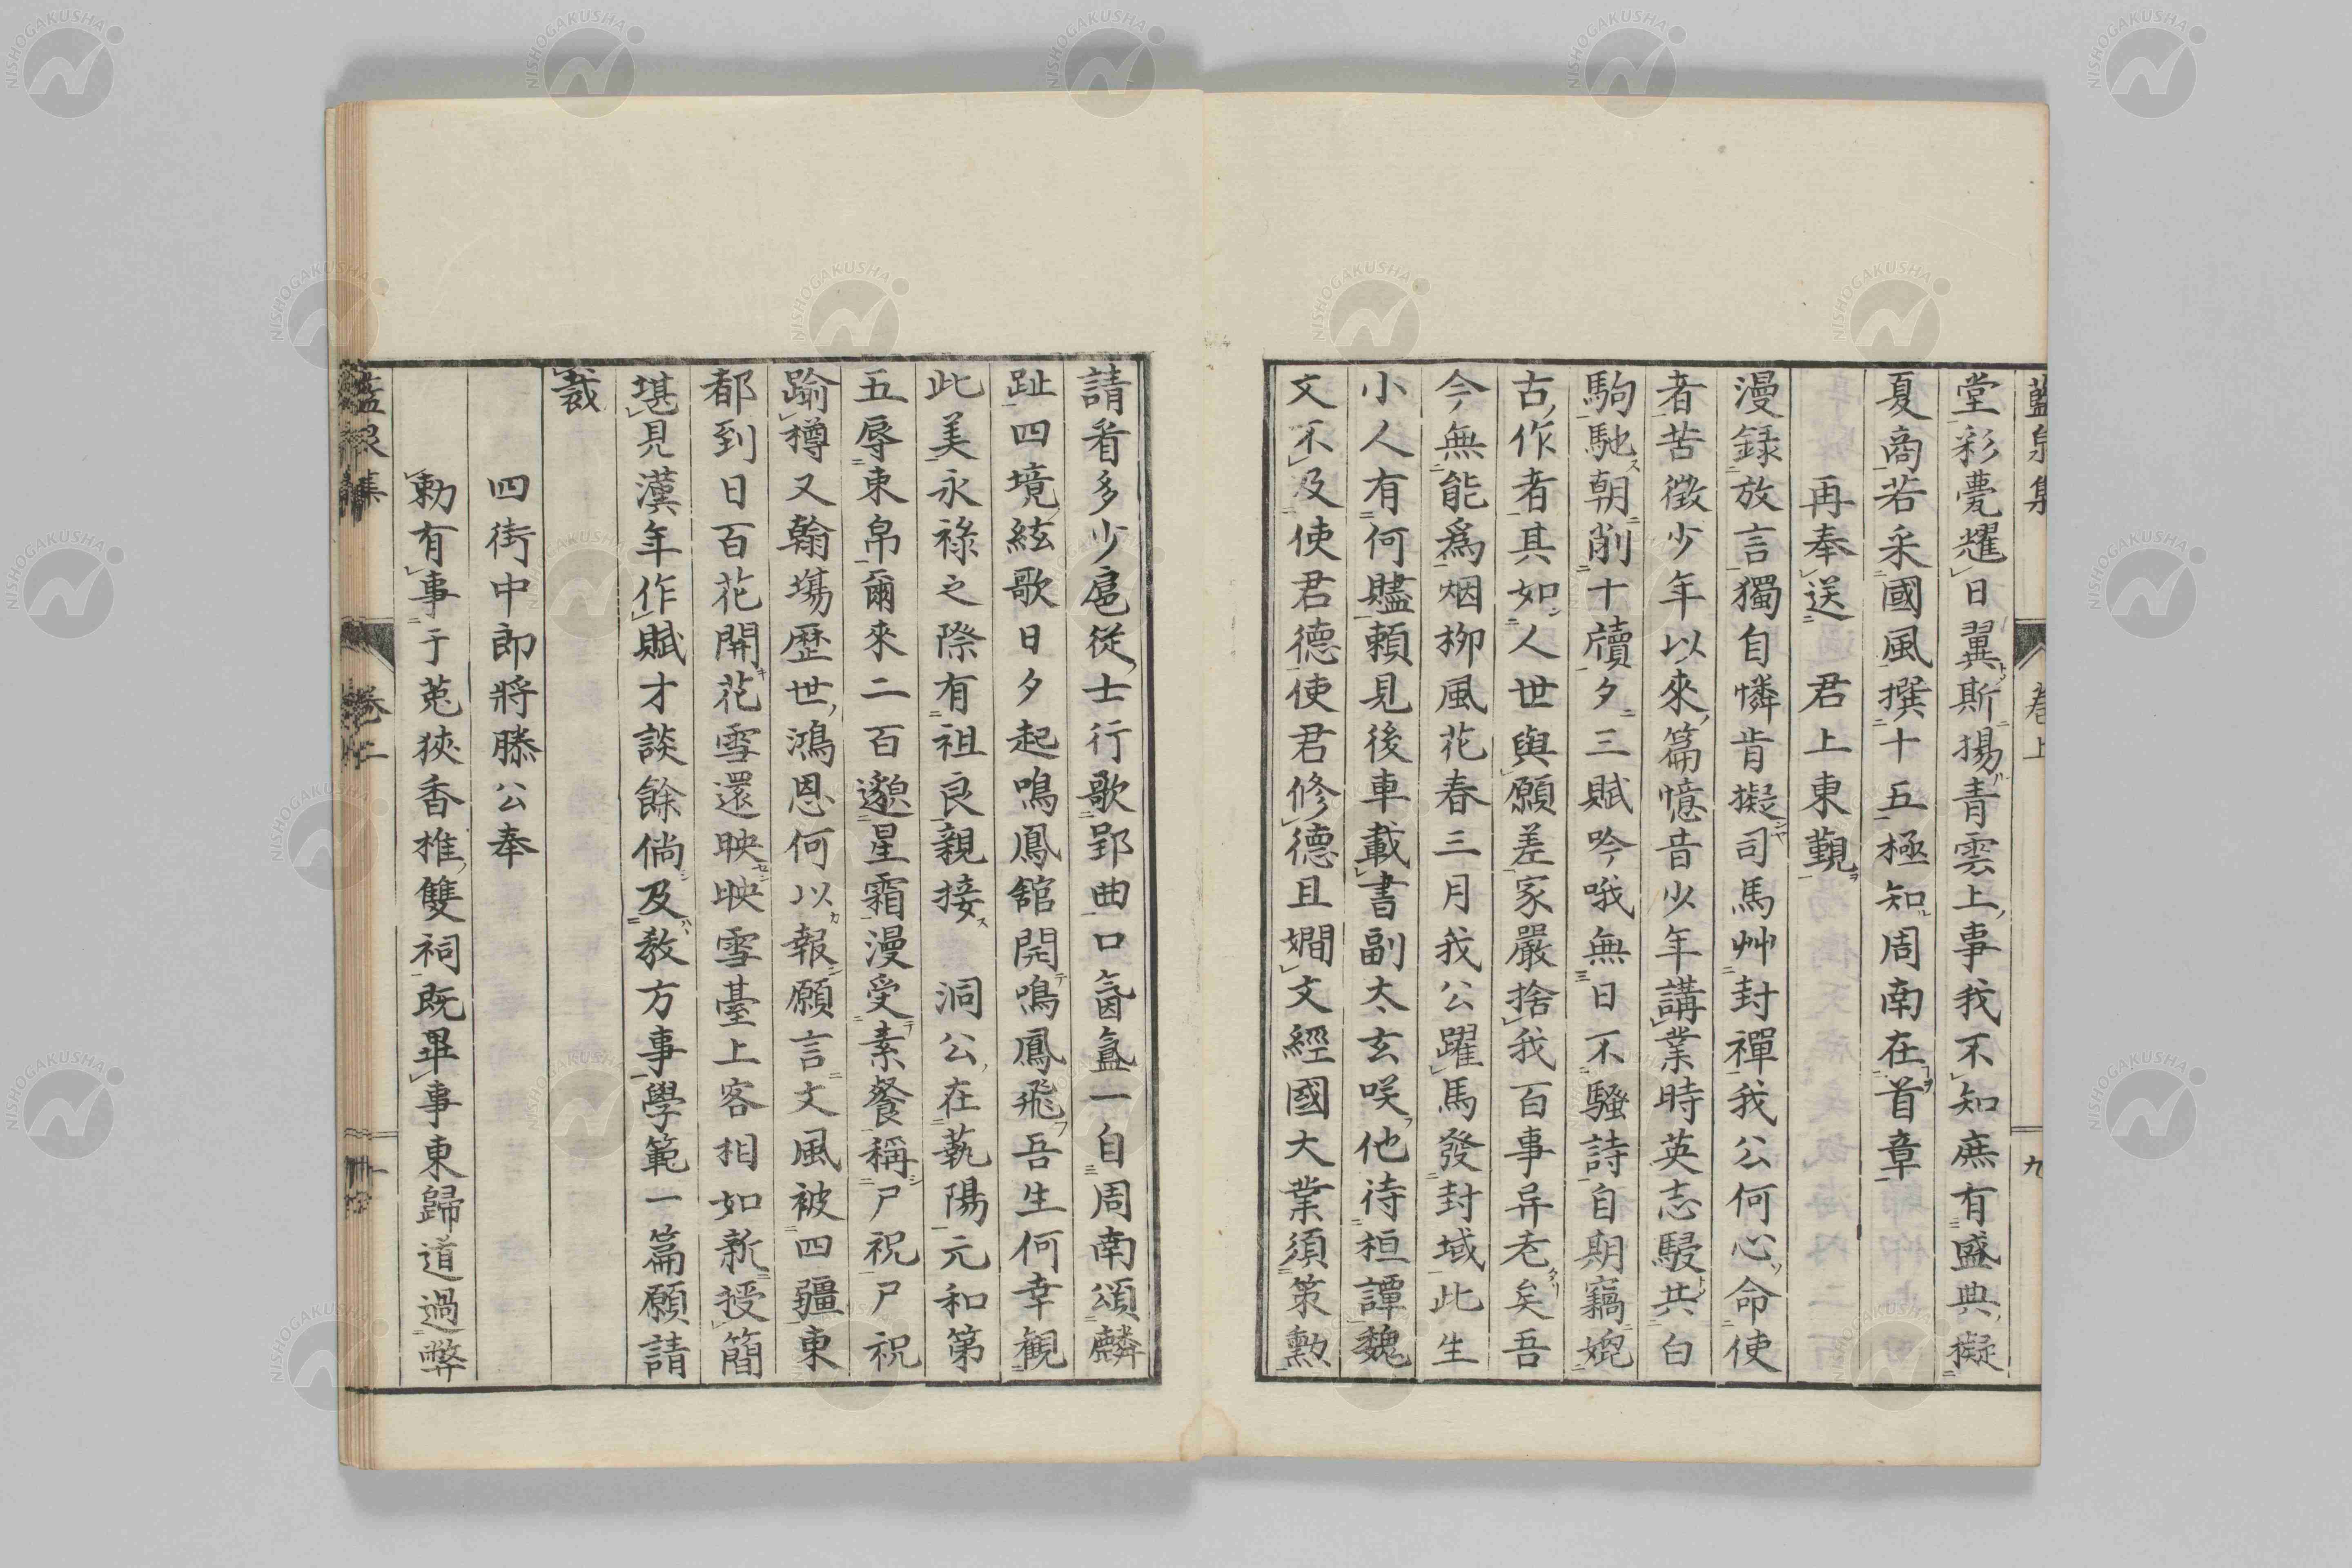 藍泉集 卷上 九
堂彩甍耀日翼斯揚青雲上事我不知庶有盛典擬
夏商若采國風撰十五極知周南在首章
再奉送 君上東覲
漫録放言獨自憐肯擬司馬艸封禪我公何心命使
者苦徵少年以來篇憶昔少年講業時英志駸共白
駒馳朝削十牘夕三賦吟哦無日不騷詩自期竊媲
古作者其如人世與願差家嚴捨我百事异老矣吾
今無能爲烟柳風花春三月我公躍馬發封域此生
小人有何贐賴見後車載書副太玄咲他待桓譚魏
文不及使君德使君修德且嫺文經國大業須策勲
請看多少扈從士行歌郢曲口氤氳一自周南頌麟
趾四境絃歌日夕起鳴鳳舘開鳴鳳飛吾生何幸觀
此美永祿之際有祖良親接 洞公在藝陽元和第
五辱東帛爾來二百邈星霜漫受素餐稱尸祝尸祝
踰樽又翰場歷世鴻恩何以報願言文風被四疆東
都到日百花開花雪還映映雪臺上客相如新授簡
堪見漢年作賦才談餘倘及教方事學範一篇願請
裁
四街中郎將滕公奉
勅有事于菟狹香椎雙祠既畢事東歸道過弊